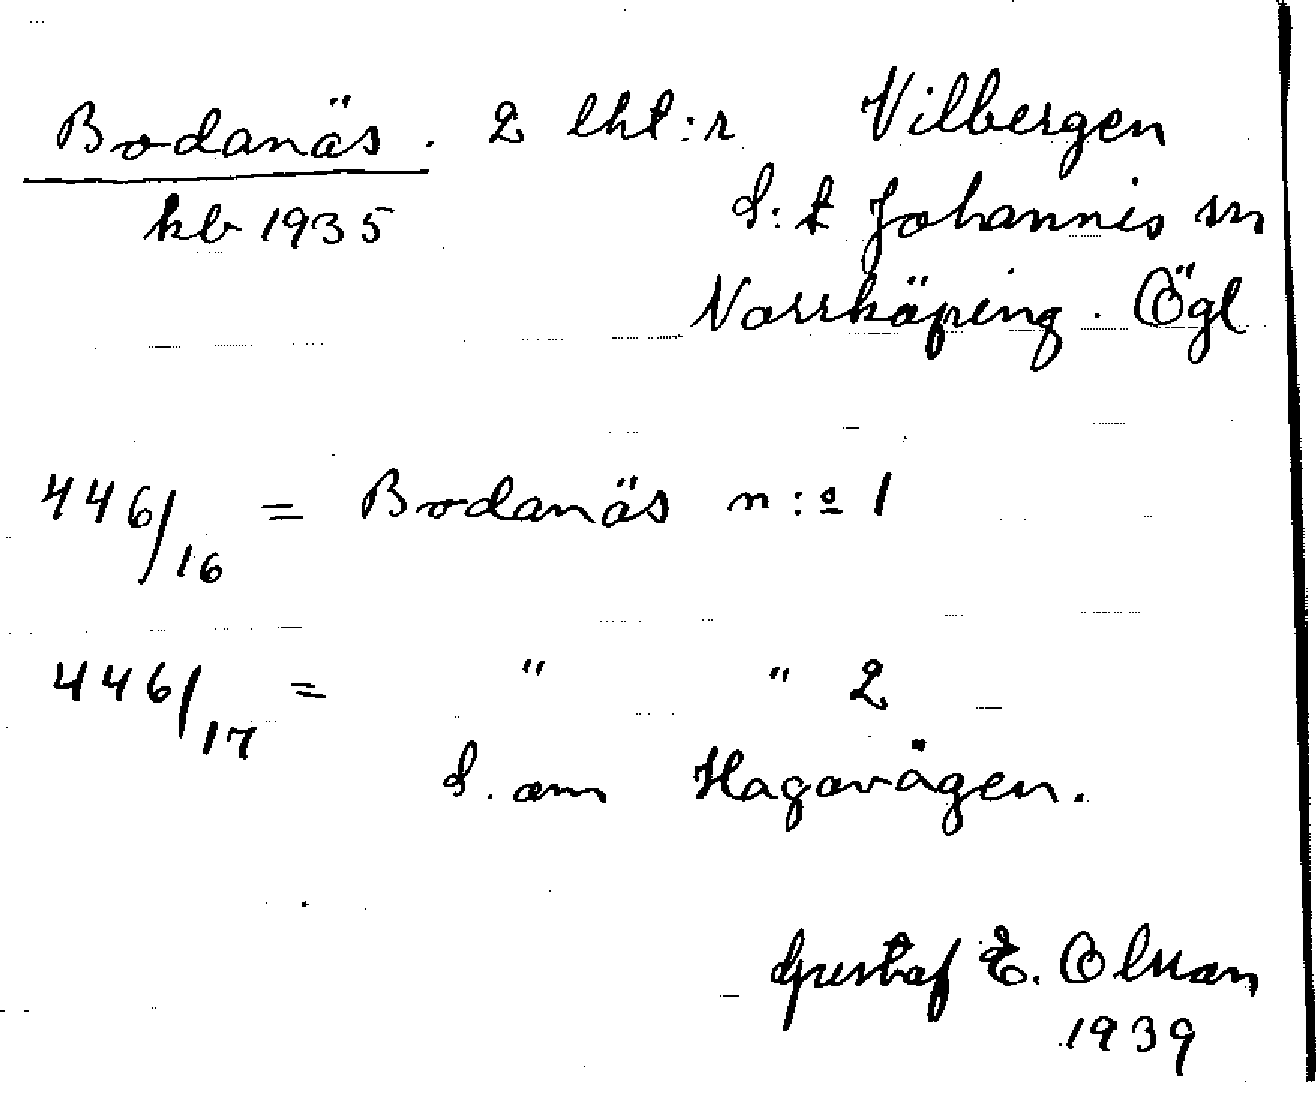 Bodanäs. 2 lht:r Vilbergen
kb 1935 S:t Johannis sn
Norrköping. Ögl
446/16 = Bodanäs n:o 1
446/17 = " " 2
S. om Hagavägen.
Gustaf E. Olsson
1939